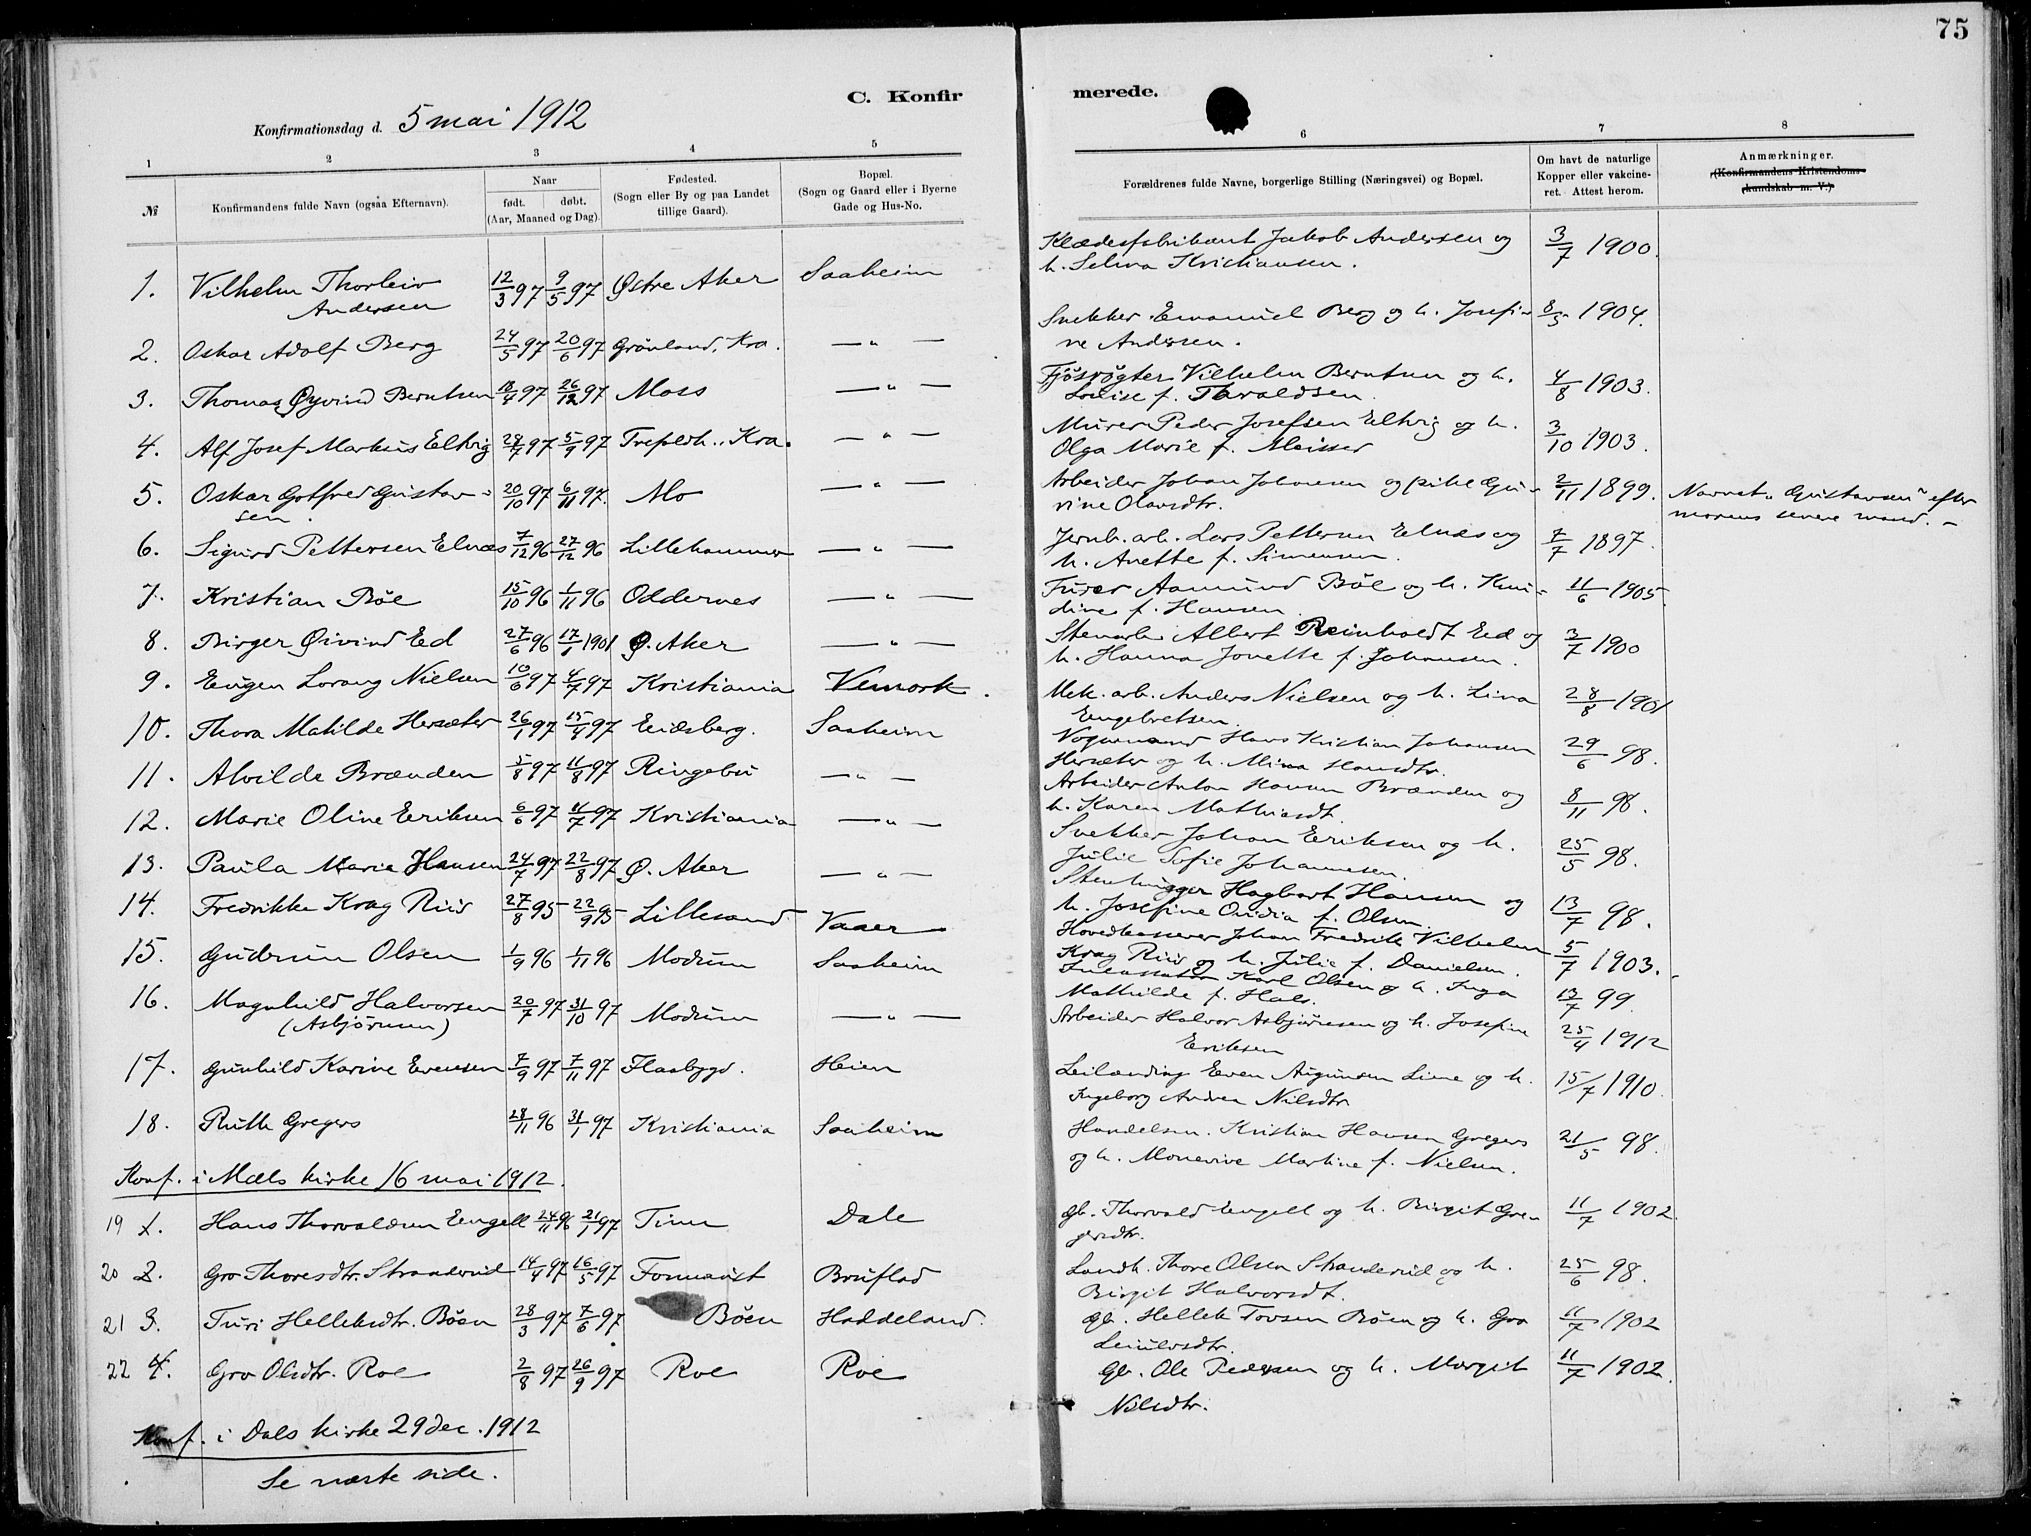 75
C. Konfirmerede.
Konfirmationsdag d. 5 mai 1912
1 2 3 4 5 6 7 8
№ Konfirmandens fulde Navn (ogsaa Efternavn). Naar født. døbt. (Aar, Maaned og Dag). Fødested. (Sogn eller By og paa Landet tillige Gaard). Bopæl. (Sogn og Gaard eller i Byerne Gade og Hus-No. Forældrenes fulde Navne, borgerlige Stilling (Næringsvei) og Bopæl. Om havt de naturlige Kopper eller vakcineret. Attest herom. Anmærkninger. (Konfirmandens Kristendomskundskab m. V.)
1. Vilhelm Thorleiv Andersen 12/3 97 9/5 97 Østre Aker Saaheim Klædesfabrikant Jakob Andersen og h. Selma Kristiansen. 3/7 1900.
2. Oskar Adolf Berg 24/5 97 20/6 97 Grønland, Kra. —"— Snekker Emanuel Berg og h. Josefine Andersen. 8/5 1904.
3. Thomas Øyvind Berntsen 18/4 97 26/12 97 Moss —"— Fjøsrøgter Vilhelm Berntsen og h. Louise f. Taraldsen. 4/8 1903.
4. Alf Josef Markus Elvig 28/7 97 5/9 97 Trefoldh., Kra. —"— Murer Peder Josefsen Elvig og h. Olga Marie f. Meisser 3/10 1903.
5. Oskar Gotfred Gustavsen. 20/10 97 6/11 97. Mo —"— Arbeider Johan Johansen og pike Gurine Olavsdtr. 2/11 1899. Navnet "Gustavsen" efter morens senere mand. –
6. Sigurd Pettersen Elnæs 7/12 96 27/12 96 Lillehammer —"— Jernb. arb. Lars Pettersen Elnæs og h. Anette f. Simensen. 7/7 1897.
7. Kristian Bøe 15/10 96 1/11 96 Oddernes —"— Aamund Bøe og h. f. Hansen. 11/6 1905.
8. Birger Øivind Ed 27/6 96 17/1 1901 Ø. Aker —"— Stenarb. Albert Reinholdt Ed og h. Hanna Jonette f. Johansen. 3/7 1900
9. Eugen Lorang Nielsen 10/6 97 4/7 97 Kristiania Vemork. Mek. arb. Anders Nielsen og h. Lina Engebretsen. 28/8 1901
10. Thora Matilde Hersæter 26/1 97 15/4 97 Eidsberg. Saaheim Vognmand Hans Kristian Johansen Hersæter og h. Mina Hansdtr. 29/6 98.
11. Alvilde Brænden 5/8 97 11/8 97 Ringebu —"— Arbeider Anton Hansen Brænden og h. Karen Mathiasdt. 8/11 98.
12. Marie Oline Eriksen 6/6 97 11/7 97 Kristiania —"— Snekker Johan Eriksen og h. Julie Sofie Johannesen. 25/5 98.
13. Paula Marie Hansen 24/7 97 22/8 97 Ø. Aker —"— Stenhugger Hagbart Hansen og h. Josefine Ovidia f. Olsen. 13/7 98.
14. Fredrikke Krag Riis 27/8 95 22/9 95 Lillesand Vaaer Hovedkasserer Johan Fredrik Vilhelm Krag Riis og h. Julie f. Danielsen. 5/7 1903.
15. Gudrun Olsen 1/9 96 1/11 96 Modum Saaheim Karl Olsen og h. Inga Mathilde f. Hals. 13/7 99.
16. Magnhild Halvorsen (Asbjørnsen) 20/7 97 31/10 97 Modum —"— Arbeider Halvor Asbjørnsen og h. Josefine Eriksen 25/4 1912
17. Gunhild Karine Evensen 7/9 97 7/11 97 Flaabygd. Heien Leilænding Even Augunsen Lime og h. Ingeborg Andrea Nilsdtr. 15/7 1910.
18. Ruth Gregers 28/11 96 31/1 97 Kristiania Saaheim Handelsm. Kristian Hansen Gregers og h. Martine f. Nielsen. 21/5 98.
Konf. i Mæls kirke 16 mai 1912.
19 1. Hans Thorvaldsen Engell 24/11 96 21/1 97 Tinn Dale gb. Thorvald Engell og h. Birgit Gregersdtr. 11/7 1902.
20 2. Gro Thoresdtr. Stranderud 14/4 97 16/5 97 Bruflad Landh. Thore Olsen Stranderud og h. Birgit Halvorsdt. 25/6 98.
21 3. Turi Helleksdtr. Bøen 28/3 97 7/6 97 Bøen Haddeland. gb. Hellek Tovsen Bøen og h. Gro Leiulvsdtr. 11/7 1902
22 4. Gro Olsdtr. Roe 2/8 97 26/9 97 Roe Roe Gb. Ole Pedersen og h. Margit Nilsdtr. 11/7 1902.
Konf. i Dals kirke 29 dec. 1912
Se næste side.